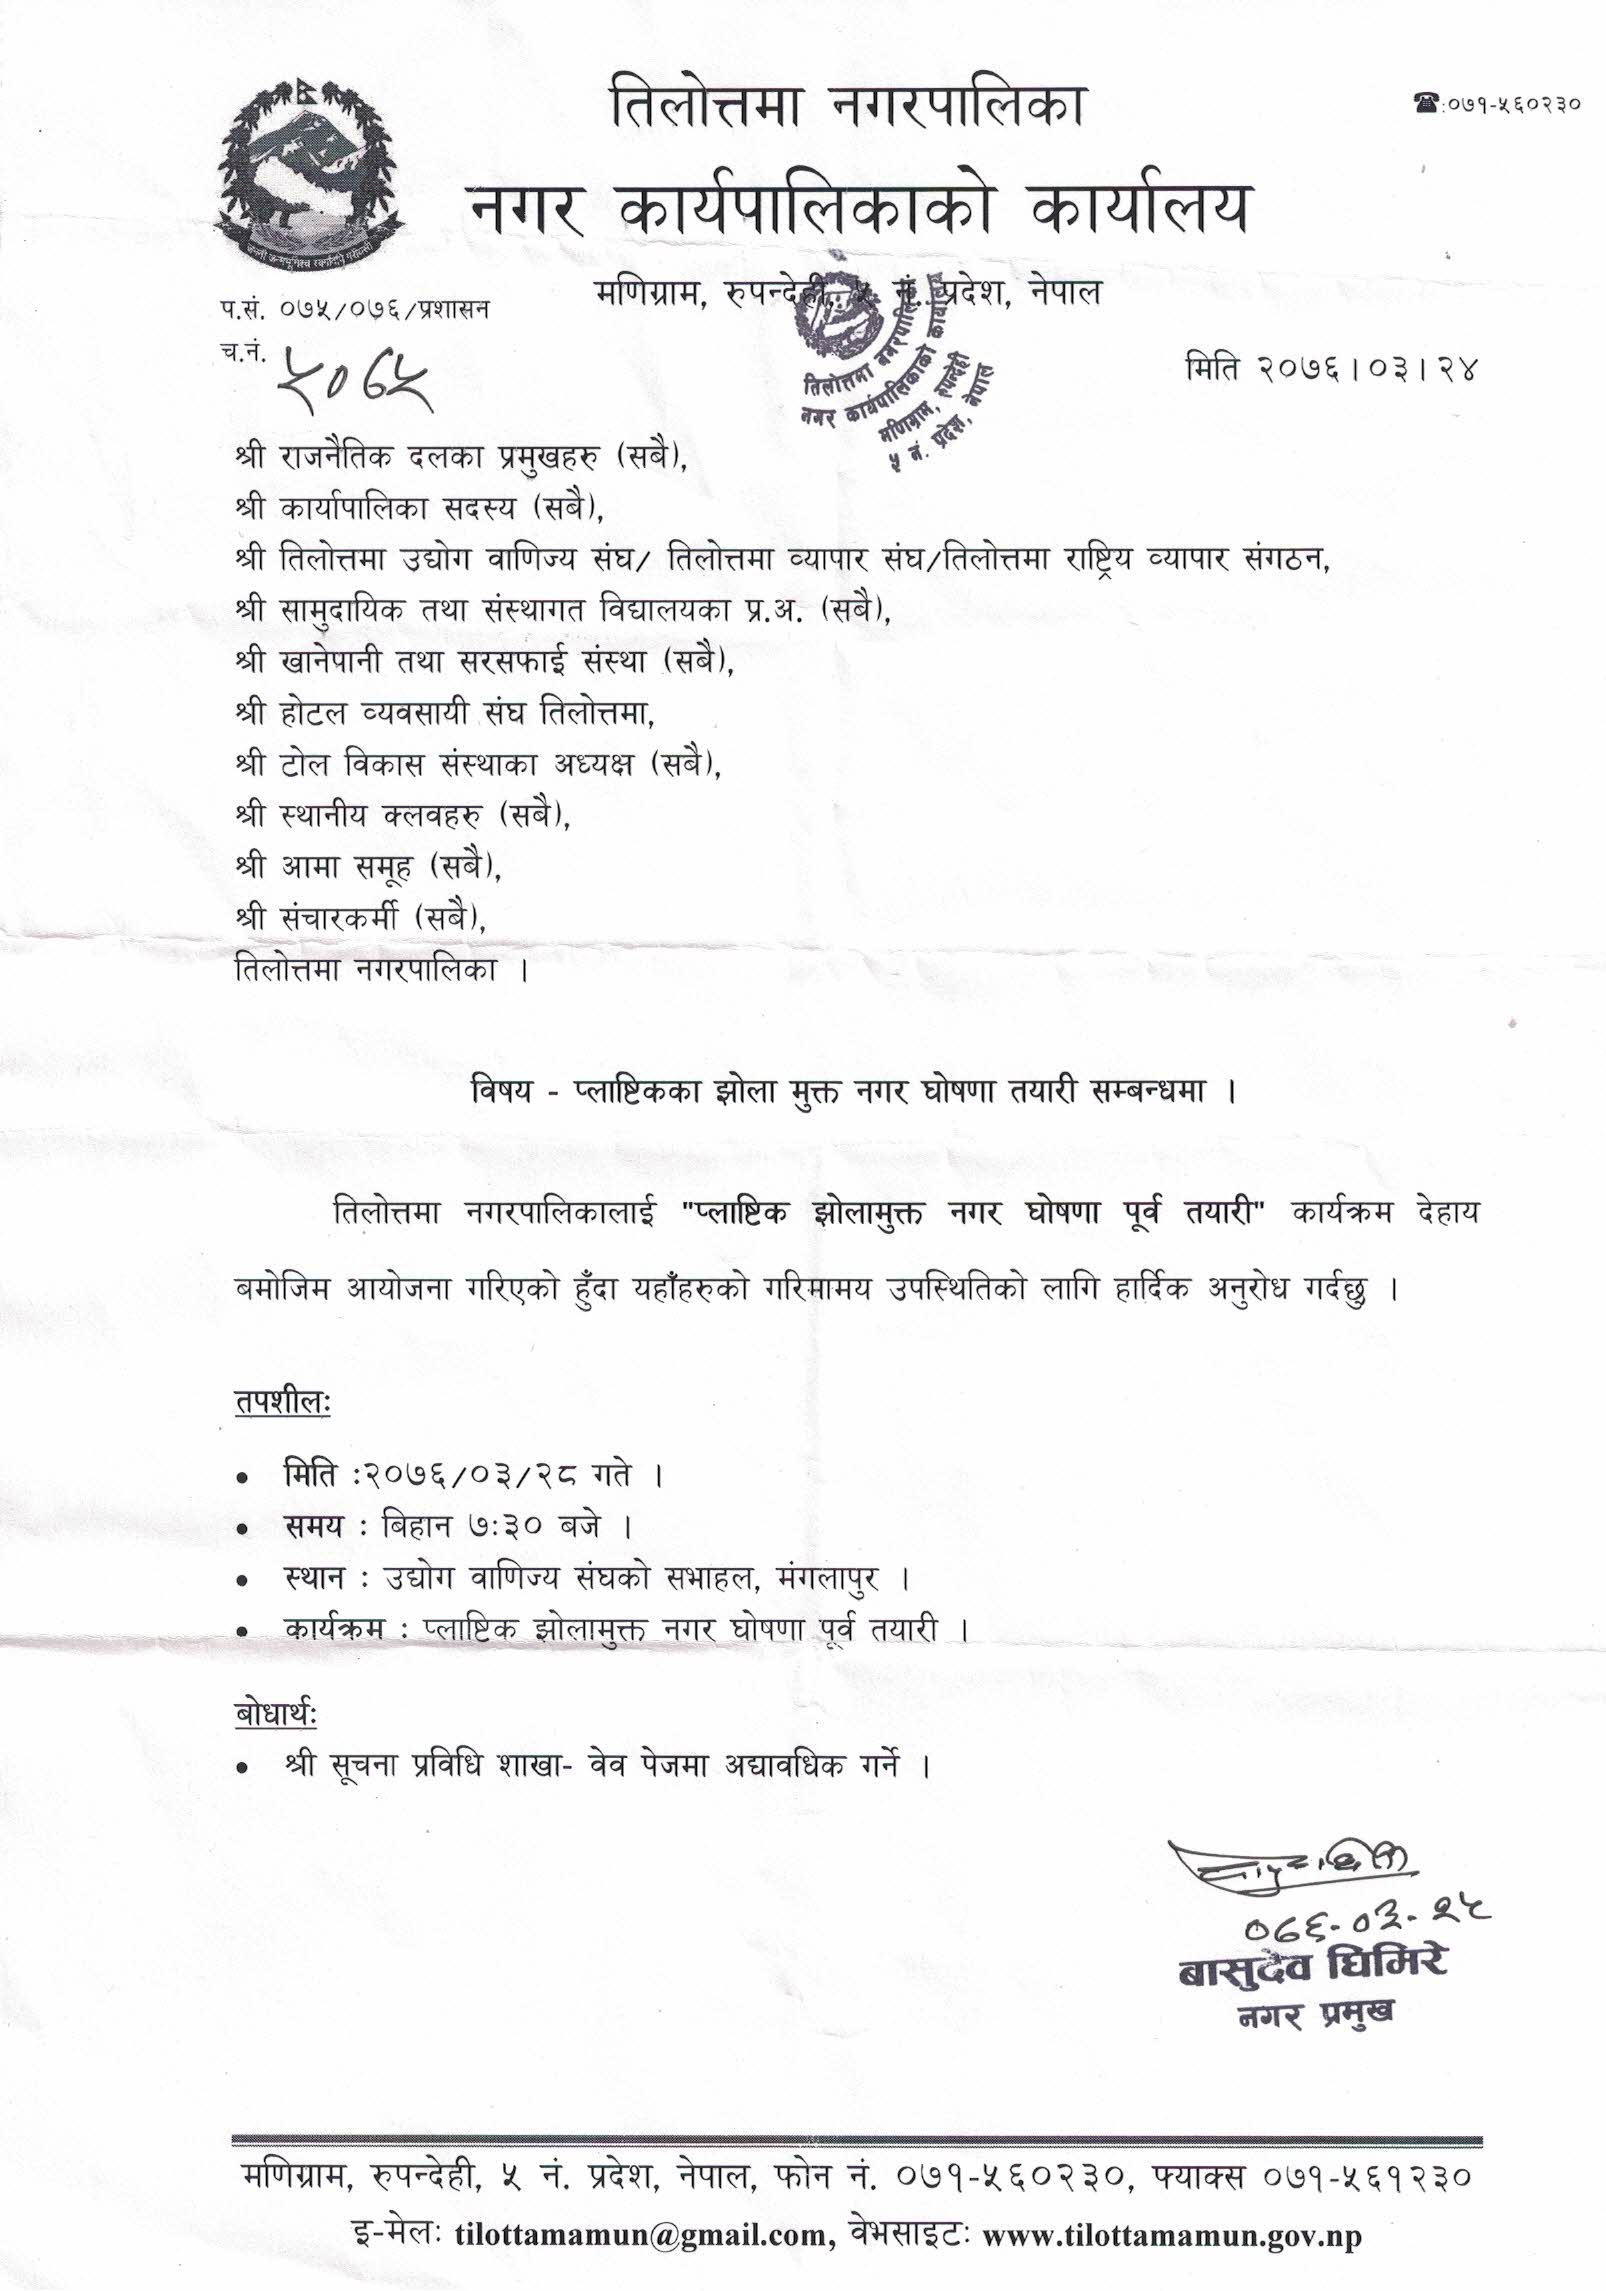 तिलोत्तमा नगरपालिका
☎:०७१-५६०२३०
नगर कार्यपालिकाको कार्यालय
मणिग्राम, रुपन्देही, ५ नं. प्रदेश, नेपाल
प.सं. ०७५/०७६/प्रशासन
च.नं. ५०७५
मिति २०७६।०३।२४
तिलोत्तमा नगरपालिका
नगर कार्यपालिकाको कार्यालय
मणिग्राम, रुपन्देही
५ नं. प्रदेश, नेपाल
श्री राजनैतिक दलका प्रमुखहरु (सबै),
श्री कार्यापालिका सदस्य (सबै),
श्री तिलोत्तमा उद्योग वाणिज्य संघ/ तिलोत्तमा व्यापार संघ/तिलोत्तमा राष्ट्रिय व्यापार संगठन,
श्री सामुदायिक तथा संस्थागत विद्यालयका प्र.अ. (सबै),
श्री खानेपानी तथा सरसफाई संस्था (सबै),
श्री होटल व्यवसायी संघ तिलोत्तमा,
श्री टोल विकास संस्थाका अध्यक्ष (सबै),
श्री स्थानीय क्लवहरु (सबै),
श्री आमा समूह (सबै),
श्री संचारकर्मी (सबै),
तिलोत्तमा नगरपालिका ।
विषय - प्लाष्टिकका झोला मुक्त नगर घोषणा तयारी सम्बन्धमा ।
तिलोत्तमा नगरपालिकालाई "प्लाष्टिक झोलामुक्त नगर घोषणा पूर्व तयारी" कार्यक्रम देहाय
बमोजिम आयोजना गरिएको हुँदा यहाँहरुको गरिमामय उपस्थितिको लागि हार्दिक अनुरोध गर्दछु ।
तपशीलः
• मिति :२०७६/०३/२८ गते ।
• समय : बिहान ७:३० बजे ।
• स्थान : उद्योग वाणिज्य संघको सभाहल, मंगलापुर ।
• कार्यक्रम : प्लाष्टिक झोलामुक्त नगर घोषणा पूर्व तयारी ।
बोधार्थः
• श्री सूचना प्रविधि शाखा- वेव पेजमा अद्यावधिक गर्ने ।
०७६-०३-२५
बासुदेव घिमिरे
नगर प्रमुख
मणिग्राम, रुपन्देही, ५ नं. प्रदेश, नेपाल, फोन नं. ०७१-५६०२३०, फ्याक्स ०७१-५६१२३०
इ-मेलः tilottamamun@gmail.com, वेभसाइटः www.tilottamamun.gov.np